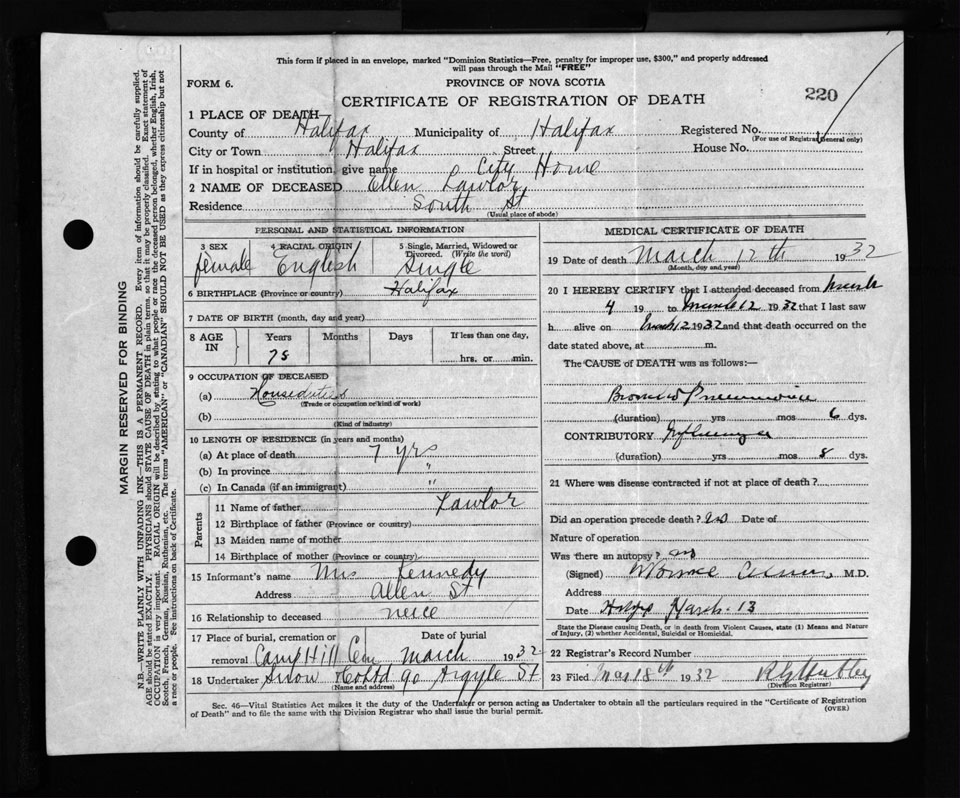 This form if placed in an envelope, marked "Dominion Statistics—Free, penalty for improper use, $300," and properly addressed
will pass through the Mail "FREE"
FORM 6.
PROVINCE OF NOVA SCOTIA
220
CERTIFICATE OF REGISTRATION OF DEATH
1 PLACE OF DEATH
County of Halifax Municipality of Halifax Registered No.
(For use of Registrar General only)
City or Town Halifax Street House No.
If in hospital or institution, give name City Home
2 NAME OF DECEASED Ellen Lawlor
Residence South St
(Usual place of abode)
PERSONAL AND STATISTICAL INFORMATION
3 SEX 4 RACIAL ORIGIN 5 Single, Married, Widowed or Divorced. (Write the word)
female English Single
6 BIRTHPLACE (Province or country) Halifax
7 DATE OF BIRTH (month, day and year)
8 AGE IN Years Months Days If less than one day,
78 hrs. or min.
9 OCCUPATION OF DECEASED
(a) Houseduties
(Trade or occupation or kind of work)
(b)
(Kind of industry)
10 LENGTH OF RESIDENCE (in years and months)
(a) At place of death 7 yrs
(b) In province "
(c) In Canada (if an immigrant) "
Parents
11 Name of father Lawlor
12 Birthplace of father (Province or country)
13 Maiden name of mother
14 Birthplace of mother (Province or country)
15 Informant's name Mrs Kennedy
Address Allen St
16 Relationship to deceased neice
17 Place of burial, cremation or removal Camp Hill Cem Date of burial March 1932
18 Undertaker Snow & Co Ltd 90 Argyle St
(Name and address)
MEDICAL CERTIFICATE OF DEATH
19 Date of death March 12th 1932
(Month, day and year)
20 I HEREBY CERTIFY that I attended deceased from March
4 19 to March 12 1932 that I last saw
h alive on March 12 1932 and that death occurred on the
date stated above, at m.
The CAUSE of DEATH was as follows:—
Broncho Pneumonia
(duration) yrs mos 6 dys.
CONTRIBUTORY Influenza
(duration) yrs mos 8 dys.
21 Where was disease contracted if not at place of death?
Did an operation precede death? no Date of
Nature of operation
Was there an autopsy? no
(Signed) M.D.
Address
Date March 13
State the Disease causing Death, or in death from Violent Causes, state (1) Means and Nature
of Injury, (2) whether Accidental, Suicidal or Homicidal.
22 Registrar's Record Number
23 Filed Mar 18th 1932
(Division Registrar)
Sec. 46—Vital Statistics Act makes it the duty of the Undertaker or person acting as Undertaker to obtain all the particulars required in the "Certificate of Registration
of Death" and to file the same with the Division Registrar who shall issue the burial permit.
(OVER)
MARGIN RESERVED FOR BINDING
N.B.—WRITE PLAINLY WITH UNFADING INK—THIS IS A PERMANENT RECORD. Every item of information should be carefully supplied.
AGE should be stated EXACTLY. PHYSICIANS should STATE CAUSE OF DEATH in plain terms, so that it may be properly classified. Exact statement of
OCCUPATION is very important. RACIAL ORIGIN will be described by stating to what people or race the deceased person belonged, whether English, Irish,
Scotch, French, German, Russian, Ruthenian, etc. The terms "AMERICAN" or "CANADIAN" SHOULD NOT BE USED as they express citizenship but not
a race or people. See instructions on back of Certificate.